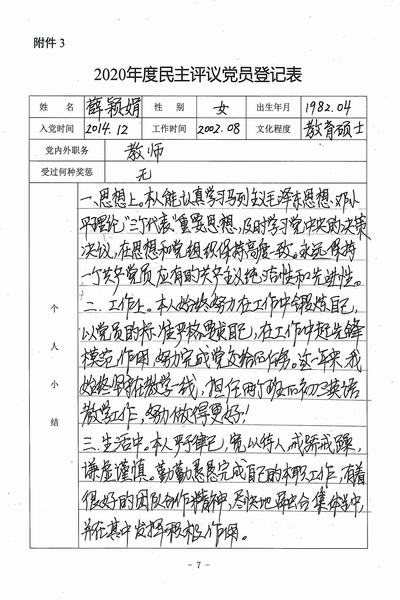 附件 3
2020年度民主评议党员登记表
姓 名 薛颖娟 性 别 女 出生年月 1982.04
入党时间 2014.12 工作时间 2002.08 文化程度 教育硕士
党内外职务 教师
受过何种奖惩 无
个人小结
一、思想上。本人能认真学习马列主义毛泽东思想、邓小
平理论"三个代表"重要思想,及时学习党中央的决策
决议,在思想和党组织保持高度一致。永远保持
一个共产党员应有的共产主义纯洁性和先进性。
二、工作上。本人始终努力在工作中锻炼自己,
以党员的标准严格要求自己,在工作中起先锋
模范作用,努力完成党交给的任务。这一年来,我
始终奋斗在教学一线,担任两个班的初三英语
教学工作,努力做得更好!
三、生活中。本人严于律己,宽以待人,戒骄戒躁,
谦虚谨慎。勤勤恳恳完成自己的本职工作,有着
很好的团队合作精神,尽快地融合集体当中,
并在其中发挥积极作用。
- 7 -